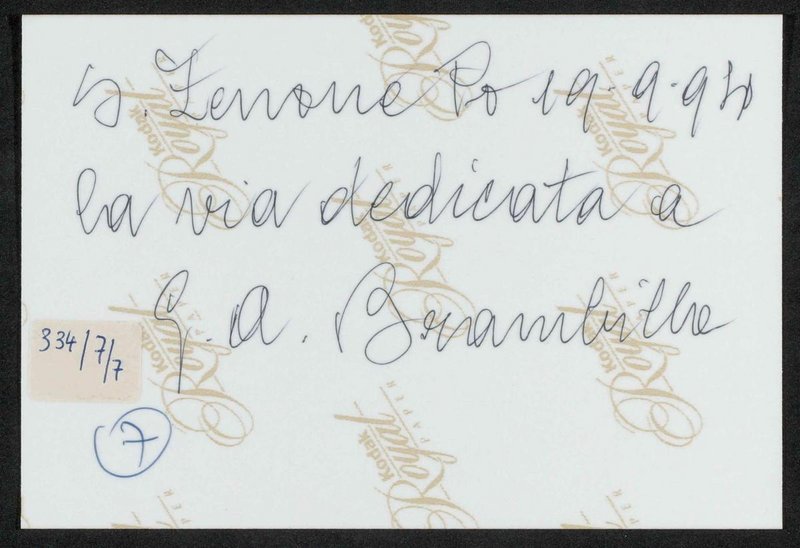 S. Zenone Po 19.9.94
la via dedicata a
G. A. Brambilla
334/7/7
7
Kodak
Royal
PAPER